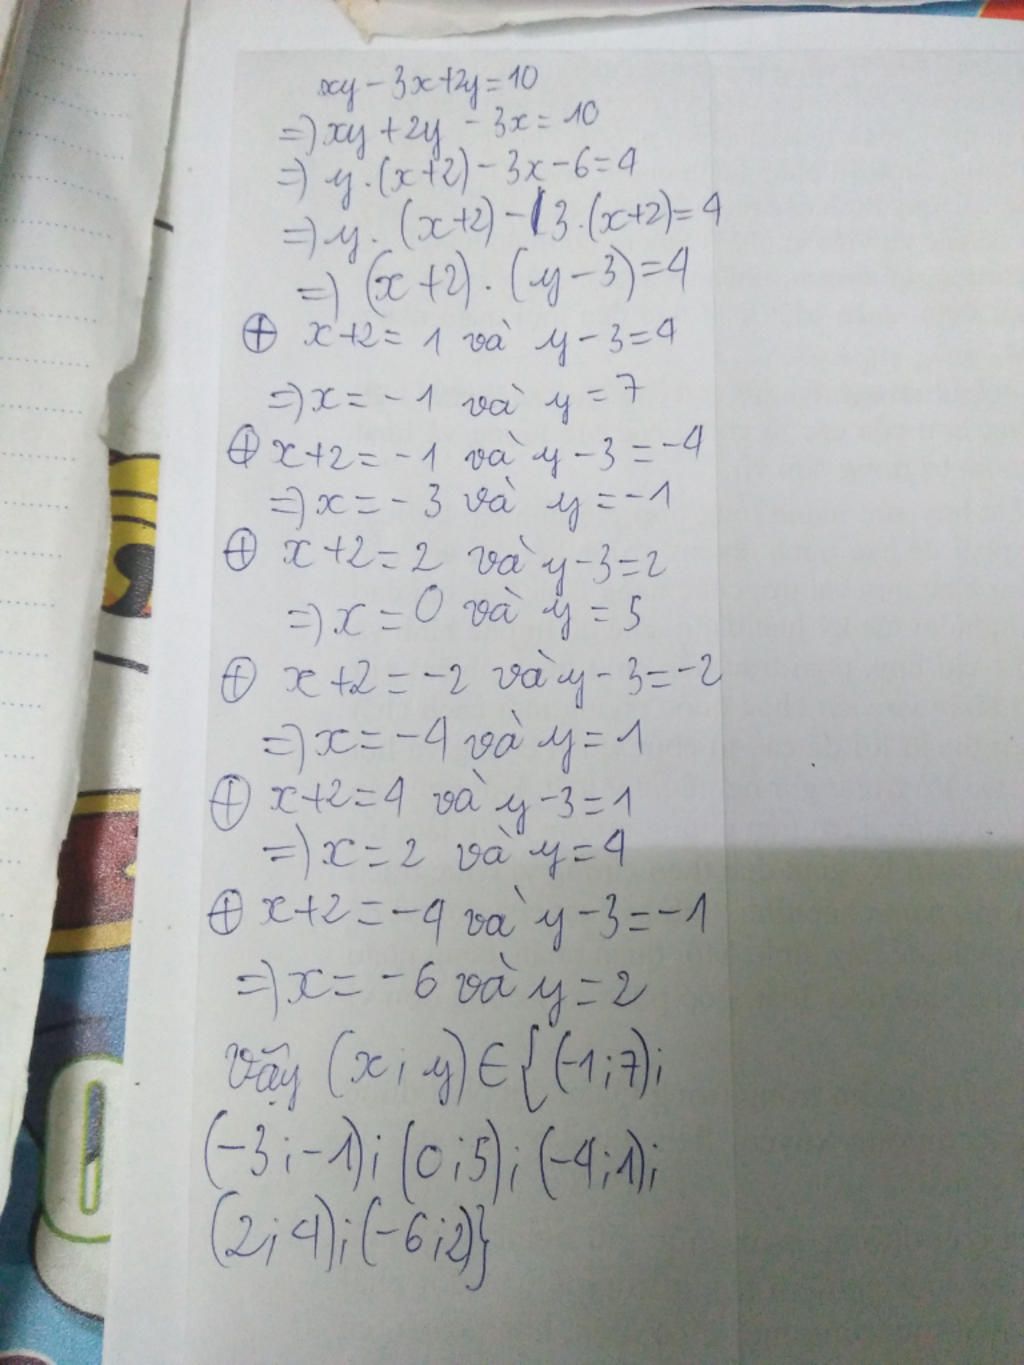 xy - 3x+2y=10
=) xy + 2y - 3x = 10
=) y . (x+2) - 3x - 6 = 4
=) y . (x+2) - 3 . (x+2) = 4
=) (x+2) . (y-3) = 4
⊕ x+2 = 1 và y-3=4
=) x = -1 và y = 7
⊕ x+2 = -1 và y-3 = -4
=) x = -3 và y = -1
⊕ x+2 = 2 và y-3=2
=) x = 0 và y = 5
⊕ x+2 = -2 và y-3 = -2
=) x = -4 và y = 1
⊕ x+2=4 và y-3=1
=) x = 2 và y = 4
⊕ x+2 = -4 và y-3 = -1
=) x = -6 và y = 2
Vậy (x; y) ∈ {(-1;7);
(-3;-1); (0;5); (-4;1);
(2;4); (-6;2)}